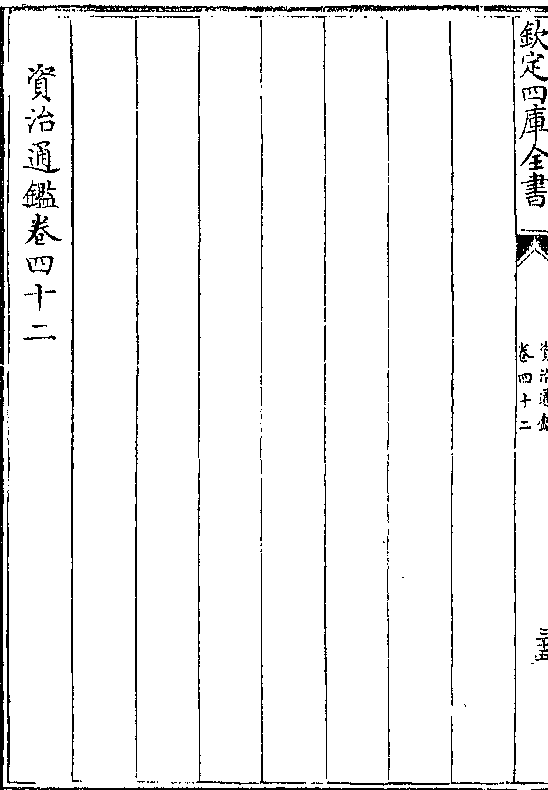 欽定四庫全書
資治通鑑
卷四十二
三十五
資治通鑑卷四十二